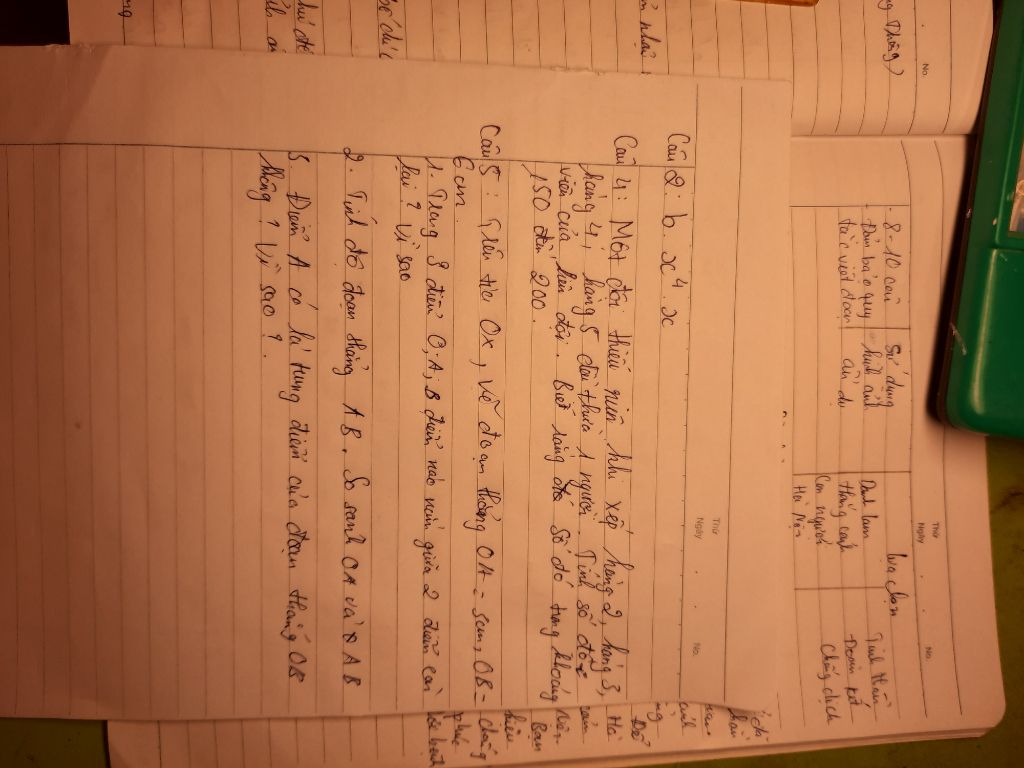 Thứ
Ngày . No.
Câu 2. b. x⁴. x
Câu 4: Một đội thiếu niên khi xếp hàng 2, hàng 3,
hàng 4, hàng 5 đều thừa 1 người. Tính số đội
viên của liên đội. Biết rằng số đó trong khoảng
150 đến 200.
Câu 5: Trên tia Ox, vẽ đoạn thẳng OA = 3cm, OB =
6cm.
1. Trong 3 điểm O, A, B điểm nào nằm giữa 2 điểm còn
lại? Vì sao
2. Tính độ đoạn thẳng AB. So sánh OA và AB
3. Điểm A có là trung điểm của đoạn thẳng OB
không? Vì sao?
Thứ
Ngày . No.
lựa chọn
- 8-10 câu
- Đảm bảo quy
tắc viết đoạn
Sử dụng
hình ảnh
Danh lam
thắng cảnh
Con người
Hà Nội
Tinh thần
Đoàn kết
No.